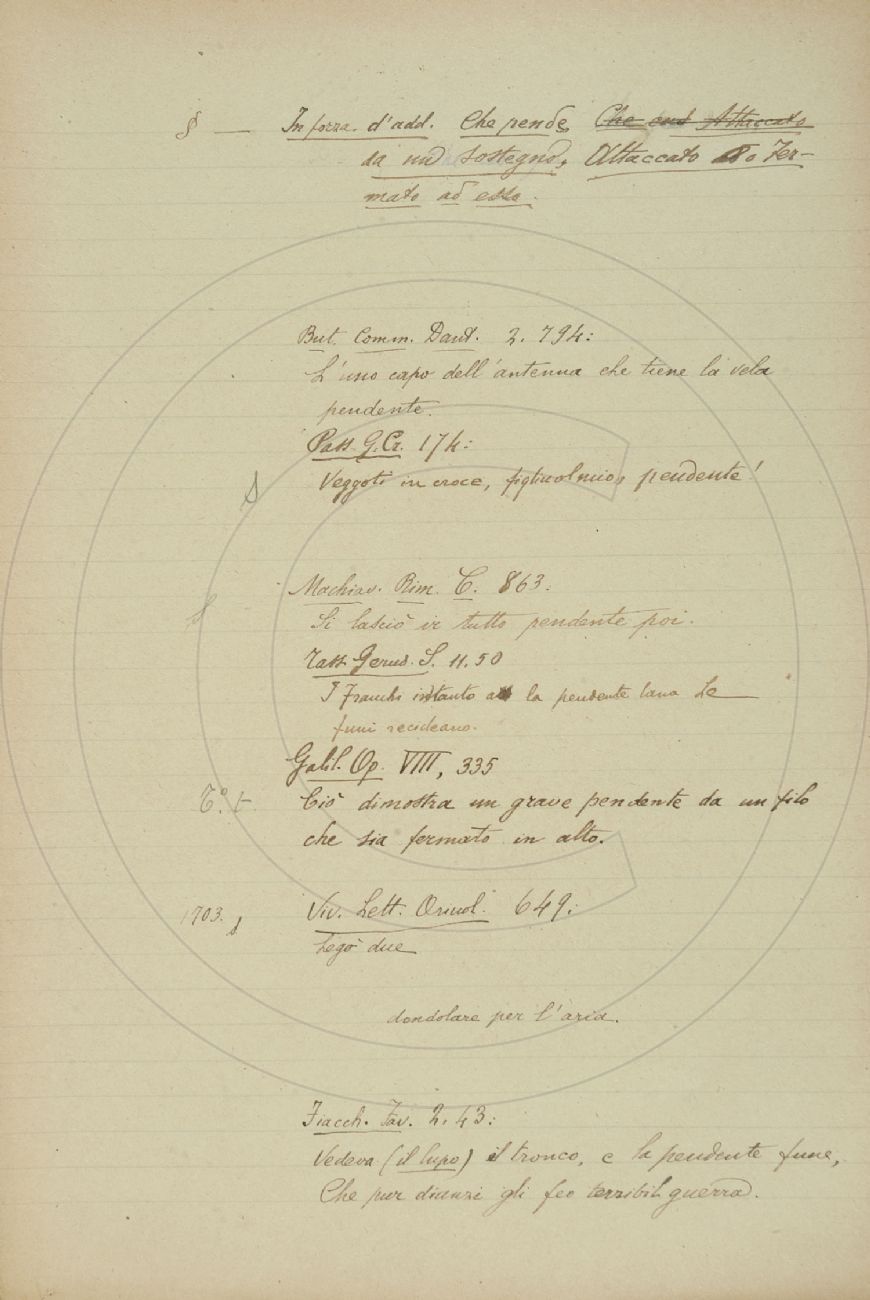 § — In forza d'add. Che pende, Che Attaccato
da un sostegno, Attaccato o Fer-
mato ad esso.
But. Comm. Dant. 2. 794:
L'uno capo dell'antenna che tiene la vela
pendente.
Pass. G. Cr. 174:
Veggoti in croce, figliuol mio, pendente!
Machiav. Rim. C. 863.
Si lasciò ir tutto pendente poi.
Tass. Gerus. S. 11. 50
I Franchi intanto a la pendente lana Le
funi recideano.
Galil. Op. VIII, 335
Ciò dimostra un grave pendente da un filo
che sia fermato in alto.
1703. Viv. Lett. Oriuol. 649:
Legò due
dondolare per l'aria.
Fiacch. Fav. 2. 43:
Vedeva (il lupo) il tronco, e la pendente fune,
Che pur dianzi gli feo terribil guerra.